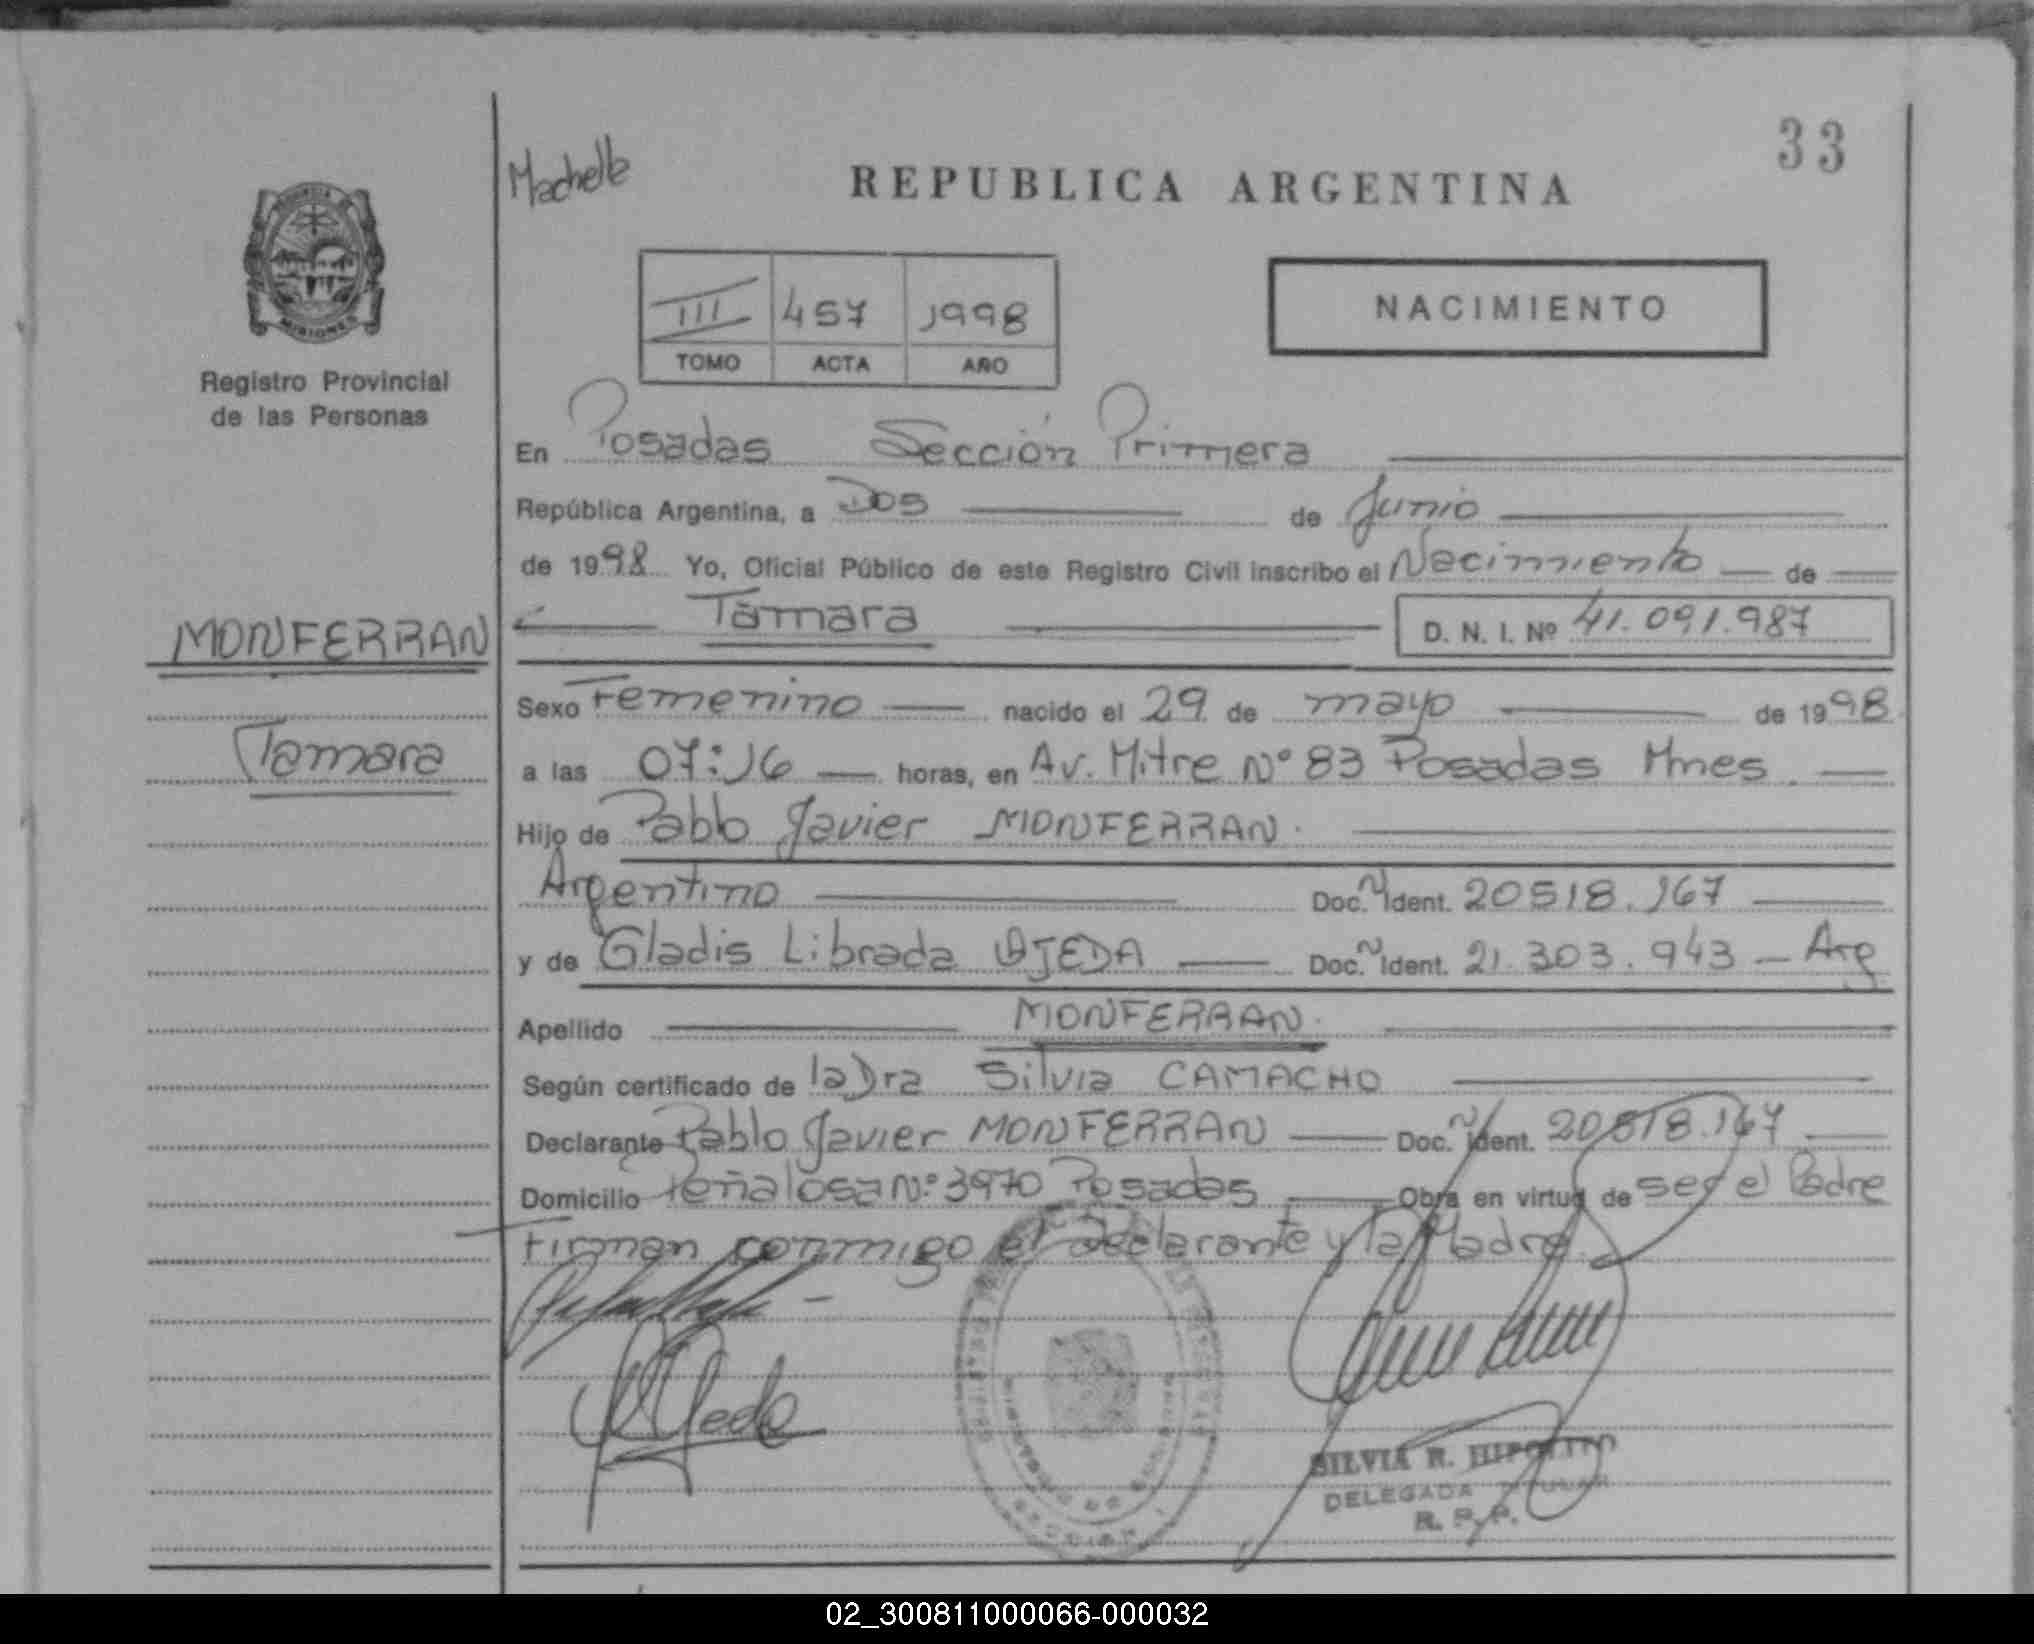 33
Machelle
REPUBLICA ARGENTINA
MISIONES
Registro Provincial
de las Personas
III 457 1998
TOMO ACTA AÑO
NACIMIENTO
En Posadas Sección Primera
República Argentina, a Dos de Junio
de 1998 Yo, Oficial Público de este Registro Civil inscribo el Nacimiento de
MONFERRAN
Tamara
Tamara D. N. I. Nº 41.091.987
Sexo Femenino nacido el 29 de mayo de 1998
a las 07:16 horas, en Av. Mitre Nº 83 Posadas Mnes.
Hijo de Pablo Javier MONFERRAN.
Argentino Doc. Ñ Ident. 20518.167
y de Gladis Librada OJEDA Doc. Ñ Ident. 21.303.943 - Arg
Apellido MONFERRAN.
Según certificado de la Dra Silvia CAMACHO
Declarante Pablo Javier MONFERRAN Doc. Ñ Ident. 20518.167
Domicilio Peñalosa Nº 3970 Posadas Obra en virtud de ser el Padre
Firman conmigo el declarante y la Madre.
SILVIA R. HIPOLITO
DELEGADA TITULAR
R. P. P.
02_300811000066-000032